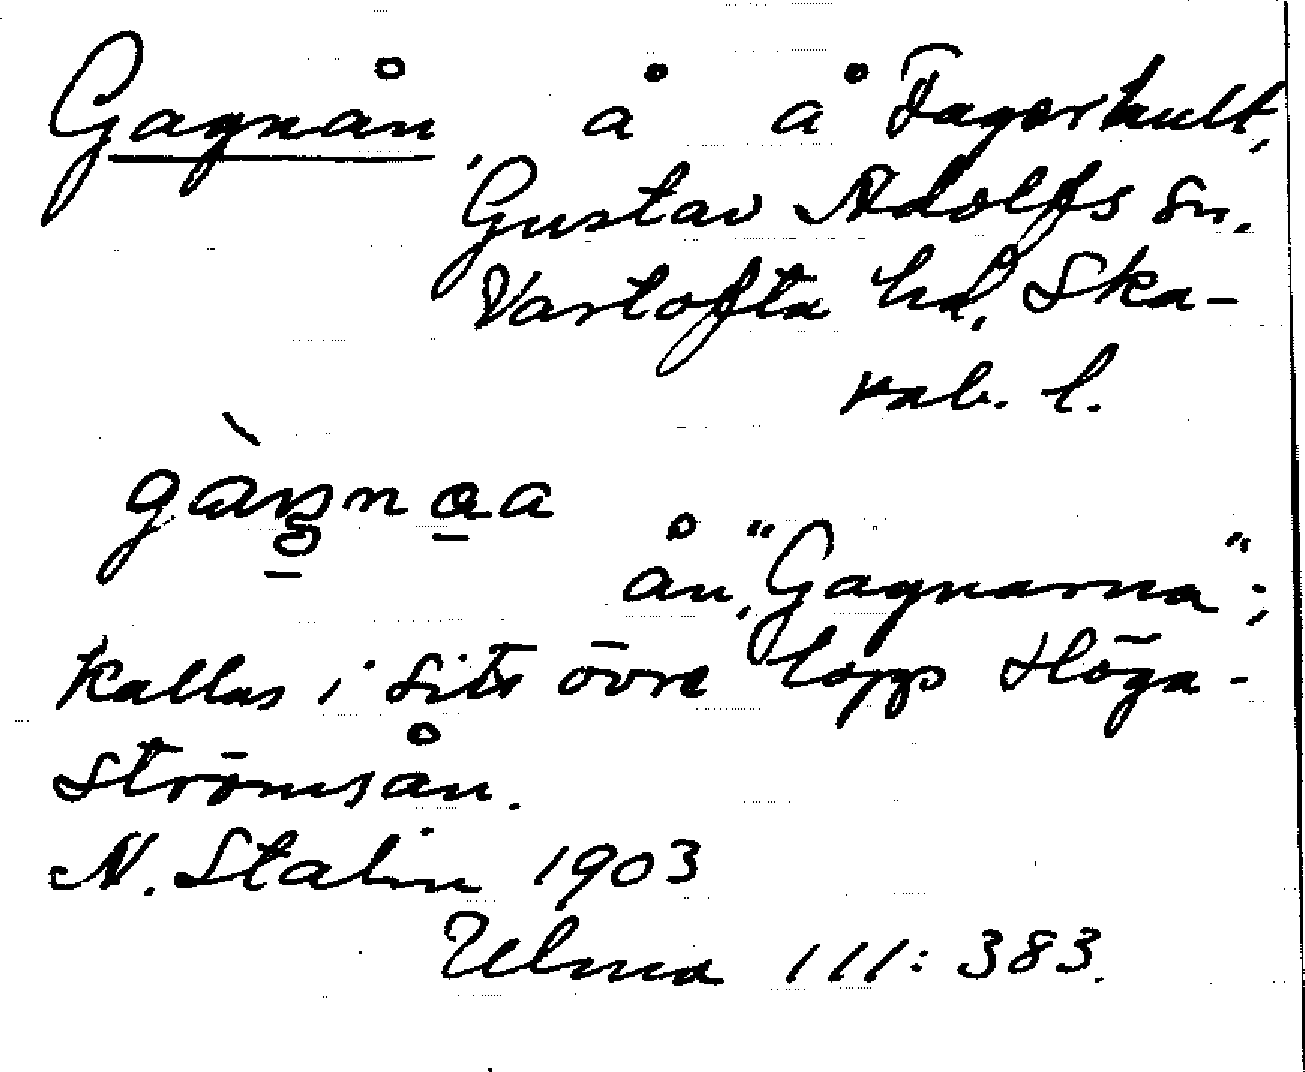 Gagnån å å Fagerhult,
Gustav Adolfs sn,
Vartofta hd, Ska-
rab. l.
ån, "Gagnarna";
kallas i sitt övre lopp Höga-
strömsån.
N. Stalin 1903
Ulma 111:383.